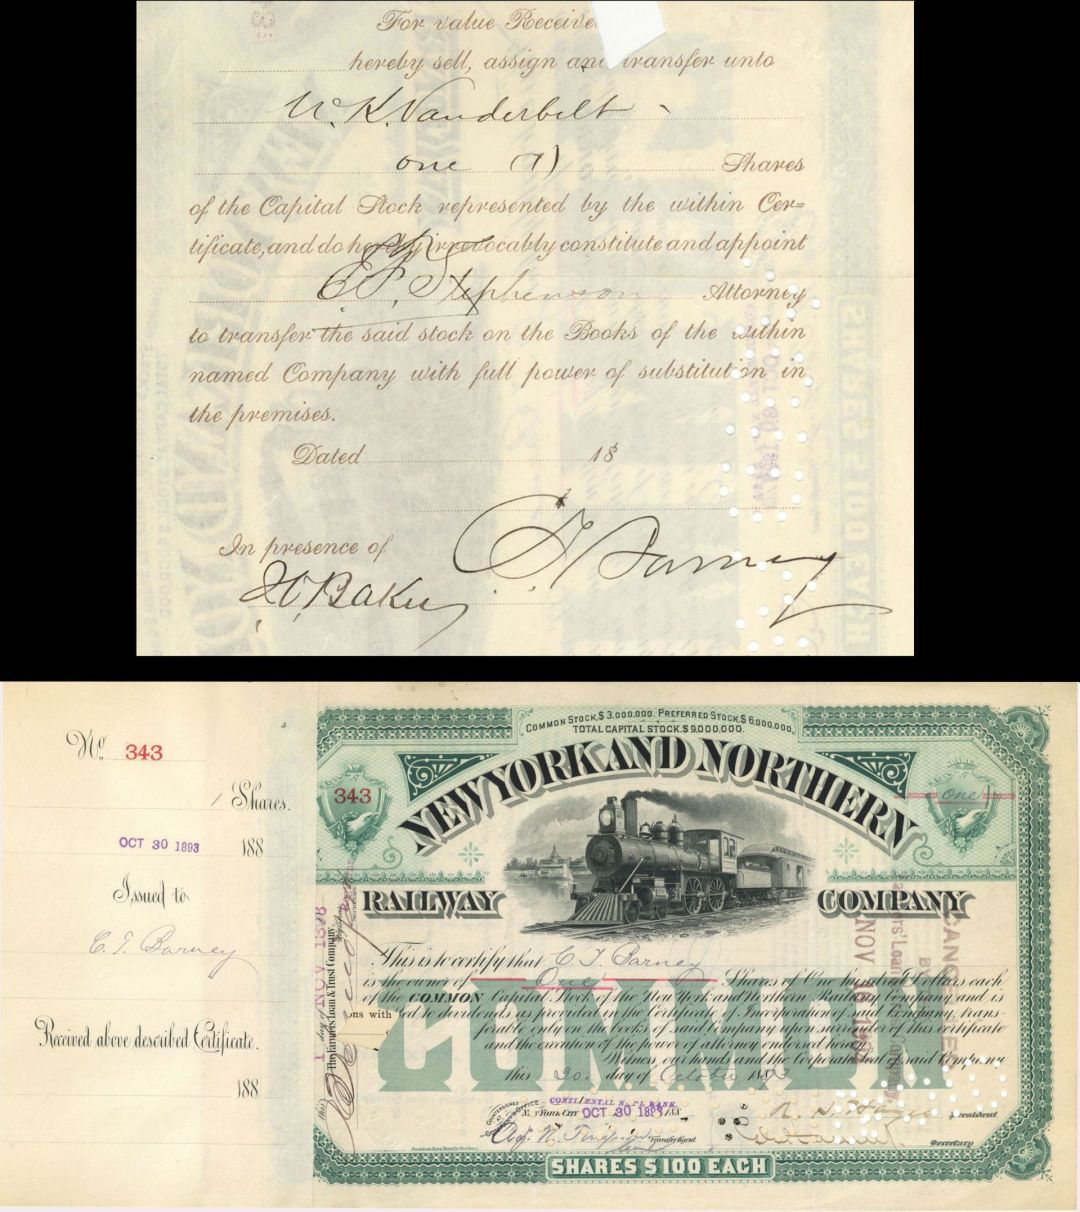 For value Receive
hereby sell, assign and transfer unto
W. K. Vanderbilt
one (1) Shares
of the Capital Stock represented by the within Cer=
tificate, and do hereby irrevocably constitute and appoint
E. F. Stephenson Attorney
to transfer the said stock on the Books of the within
named Company with full power of substitution in
the premises.
Dated 18
In presence of
C. T. Barney
H. Baker
No. 343
1 Shares.
OCT 30 1893 188
Issued to
C. T. Barney
Received above described Certificate.
188
COMMON STOCK, $3,000,000. PREFERRED STOCK, $6,000,000.
TOTAL CAPITAL STOCK, $9,000,000.
343
NEW YORK AND NORTHERN
one
RAILWAY COMPANY
This is to certify that C. T. Barney
is the owner of One Shares of One hundred Dollars each
of the COMMON Capital Stock of the New York and Northern Railway Company and is
ns with led to dividends as provided in the Certificate of Incorporation of said Company, trans-
ferable only on the books of said Company upon surrender of this certificate
and the execution of the power of attorney endorsed hereon
Witness our hands and the Corporate Seal of said Company
this 30 day of October 1893
COMMON
COUNTERSIGNED AT COMPANY'S OFFICE
CONTINENTAL NAT'L BANK,
NEW YORK CITY OCT 30 1893 188
Transfer Agent
President
Secretary
SHARES $100 EACH
The Farmers Loan & Trust Company,
NOV 1893
NOV